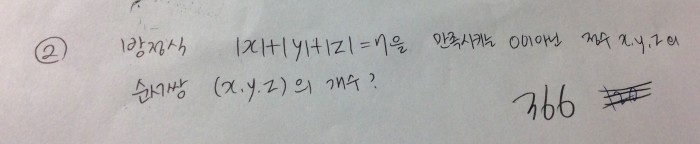 ② 방정식 |x|+|y|+|z|=7을 만족시키는 0이아닌 정수 x,y,z의
순서쌍 (x,y,z)의 개수?
366